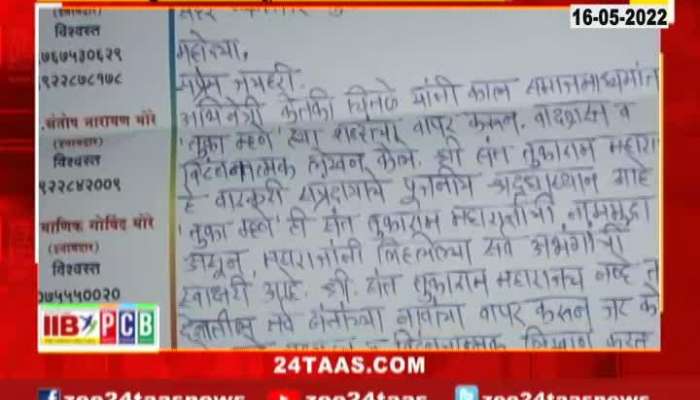 16-05-2022
विश्वस्त
९७६७५३०६२९
९२२८७८१७८
.संतोष नारायण मोरे
विश्वस्त
९२२८४२००९
माणिक गोविंद मोरे
विश्वस्त
०७५५५००२०
महोदया,
सप्रेम जयहरी.
अभिनेत्री केतकी चितळे यांनी काल समाजमाध्यमांत
'तुका म्हणे' ह्या शब्दांचा वापर करून. वादग्रस्त व
विटंबनात्मक लेखन केले. श्री संत तुकाराम महारा
हे वारकरी संप्रदायाचे पुजनीय श्रद्धास्थान आहे
'तुका म्हणे' ही संत तुकाराम महाराजांची नाममुद्रा
असून महाराजांनी लिहलेल्या सर्व अभंगांची
स्वाक्षरी आहे. श्री. संत तुकाराम महाराजच नव्हे त
देशातील सर्व संतांच्या नावांचा वापर करून जर के
विटंबनात्मक लिखाण करत
IIB PCB
24TAAS.COM
zee24taasnews zee24taasnews zee24taasnews